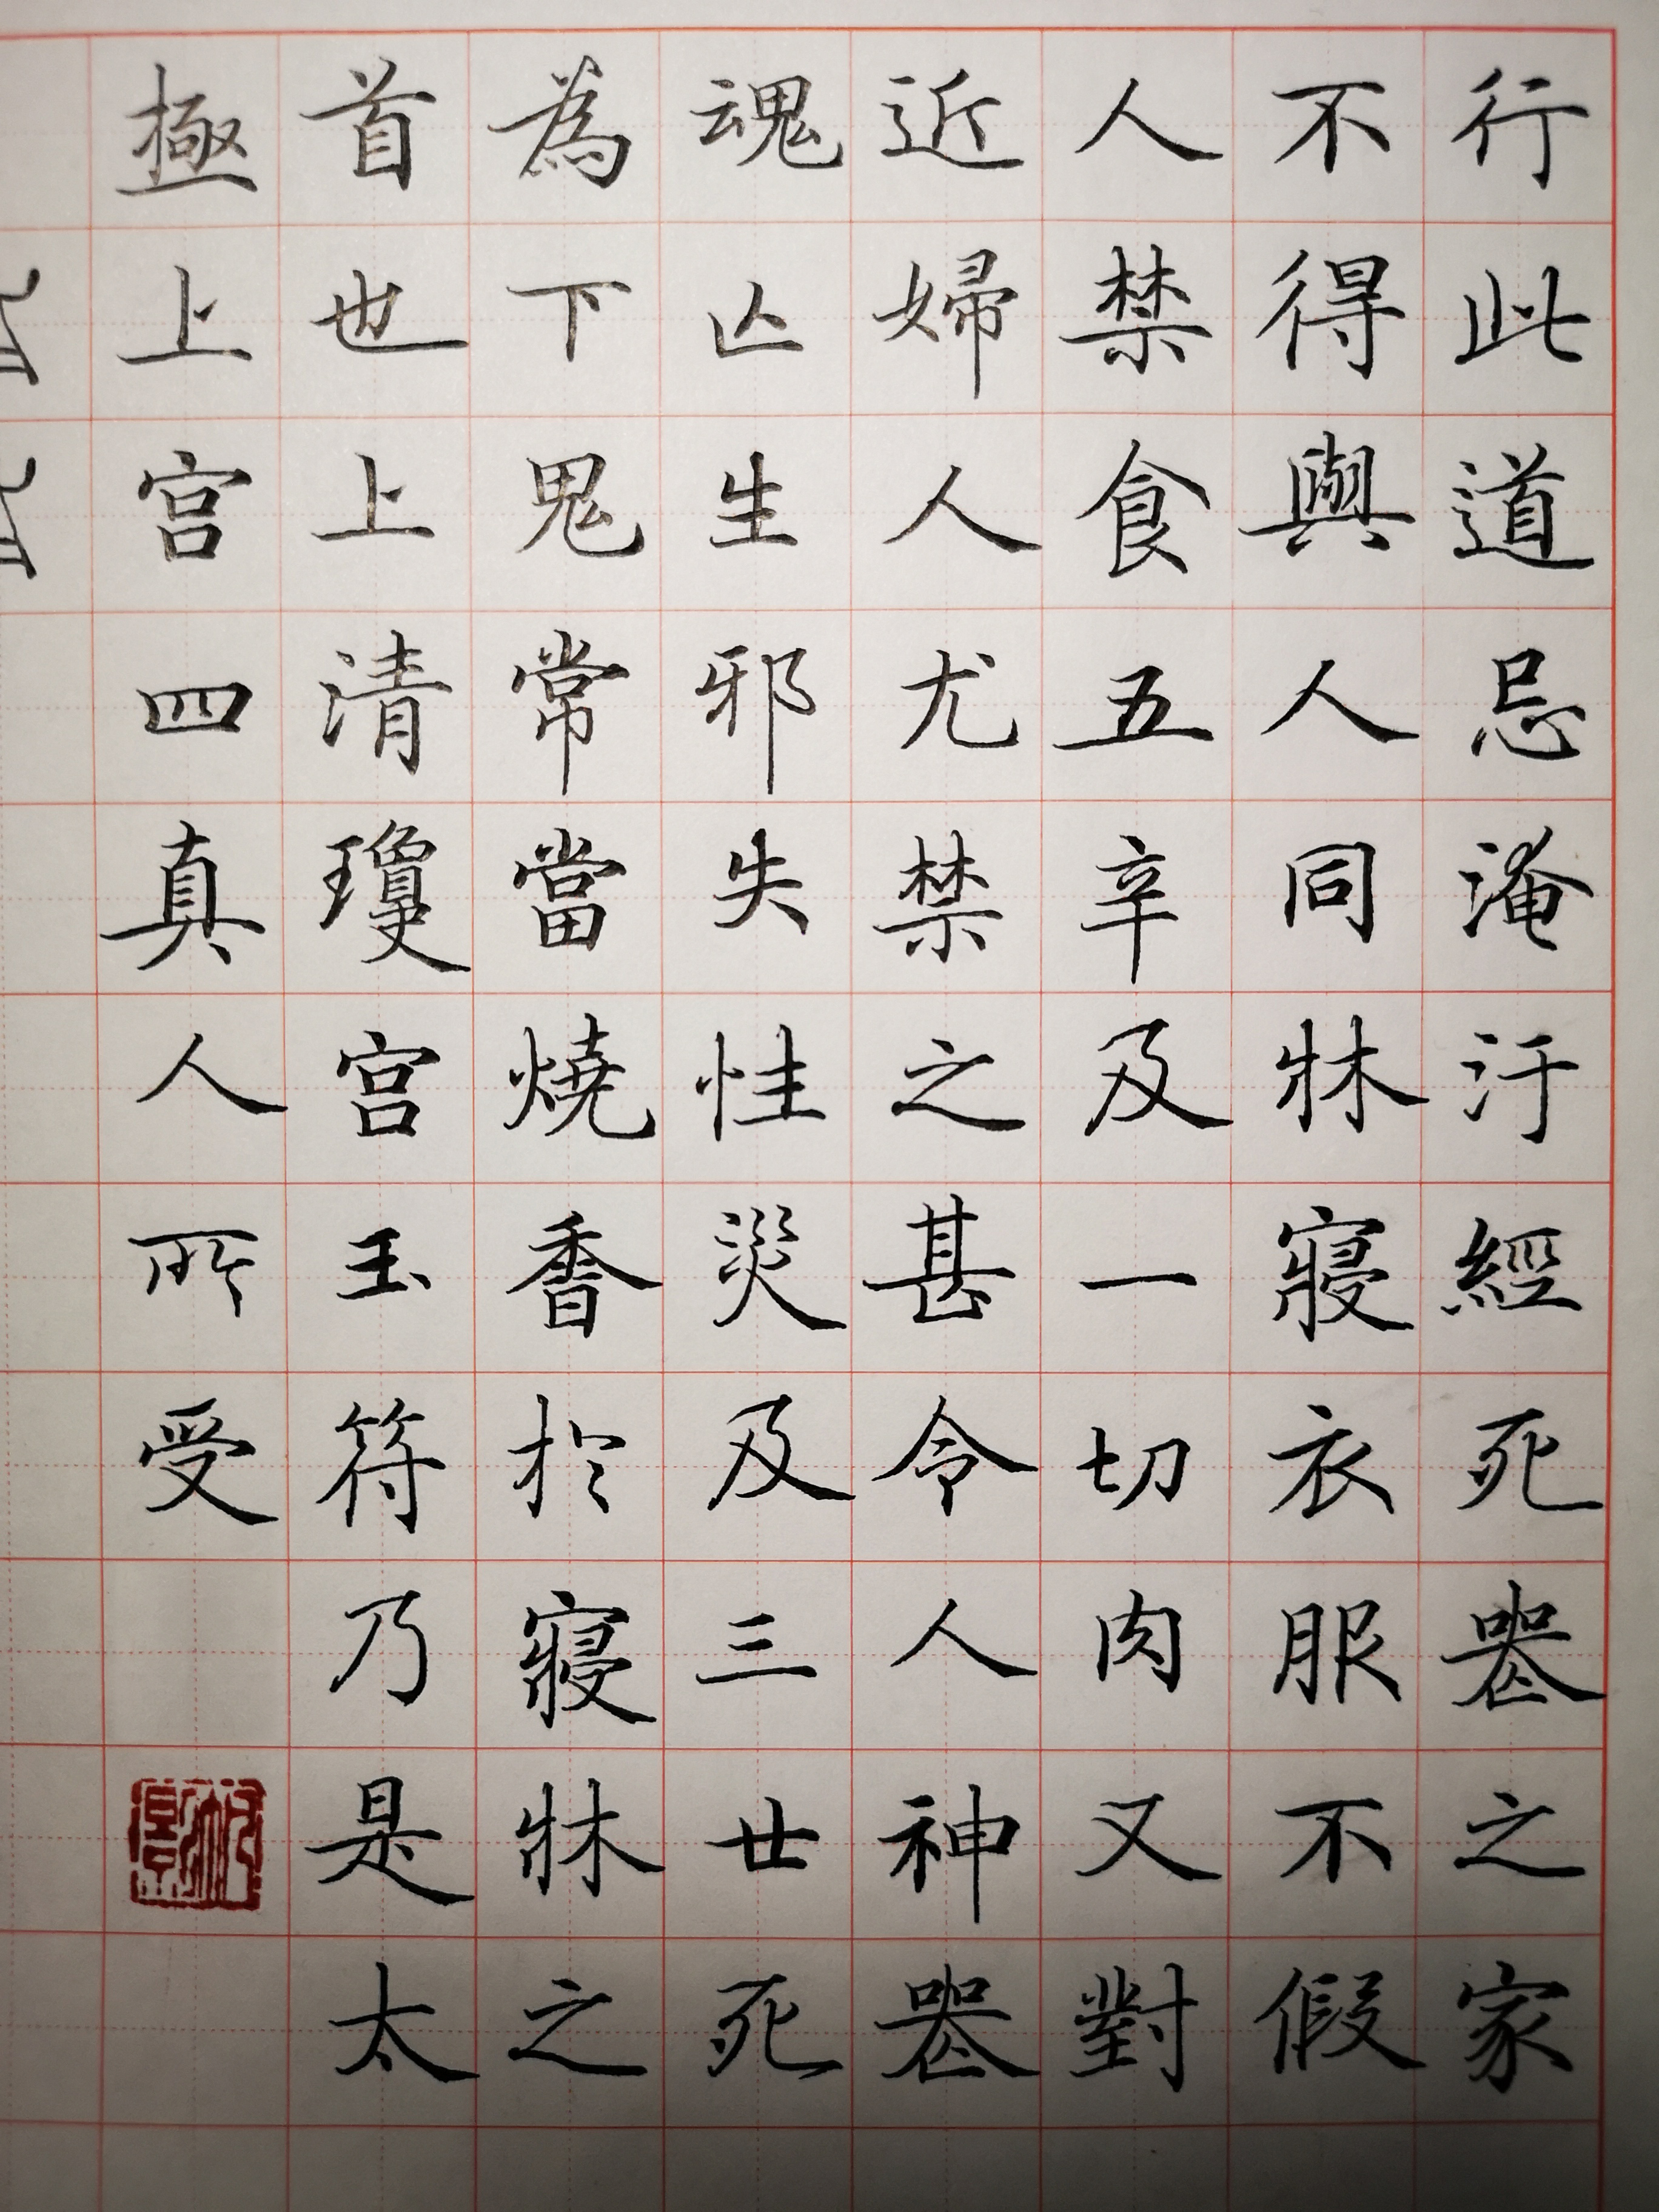 行此道忌淹汙經死喪之家
不得與人同牀寢衣服不假
人禁食五辛及一切肉又對
近婦人尤禁之甚令人神喪
魂亡生邪失性災及三世死
為下鬼常當燒香於寢牀之
首也上清瓊宮玉符乃是太
極上宮四真人所受